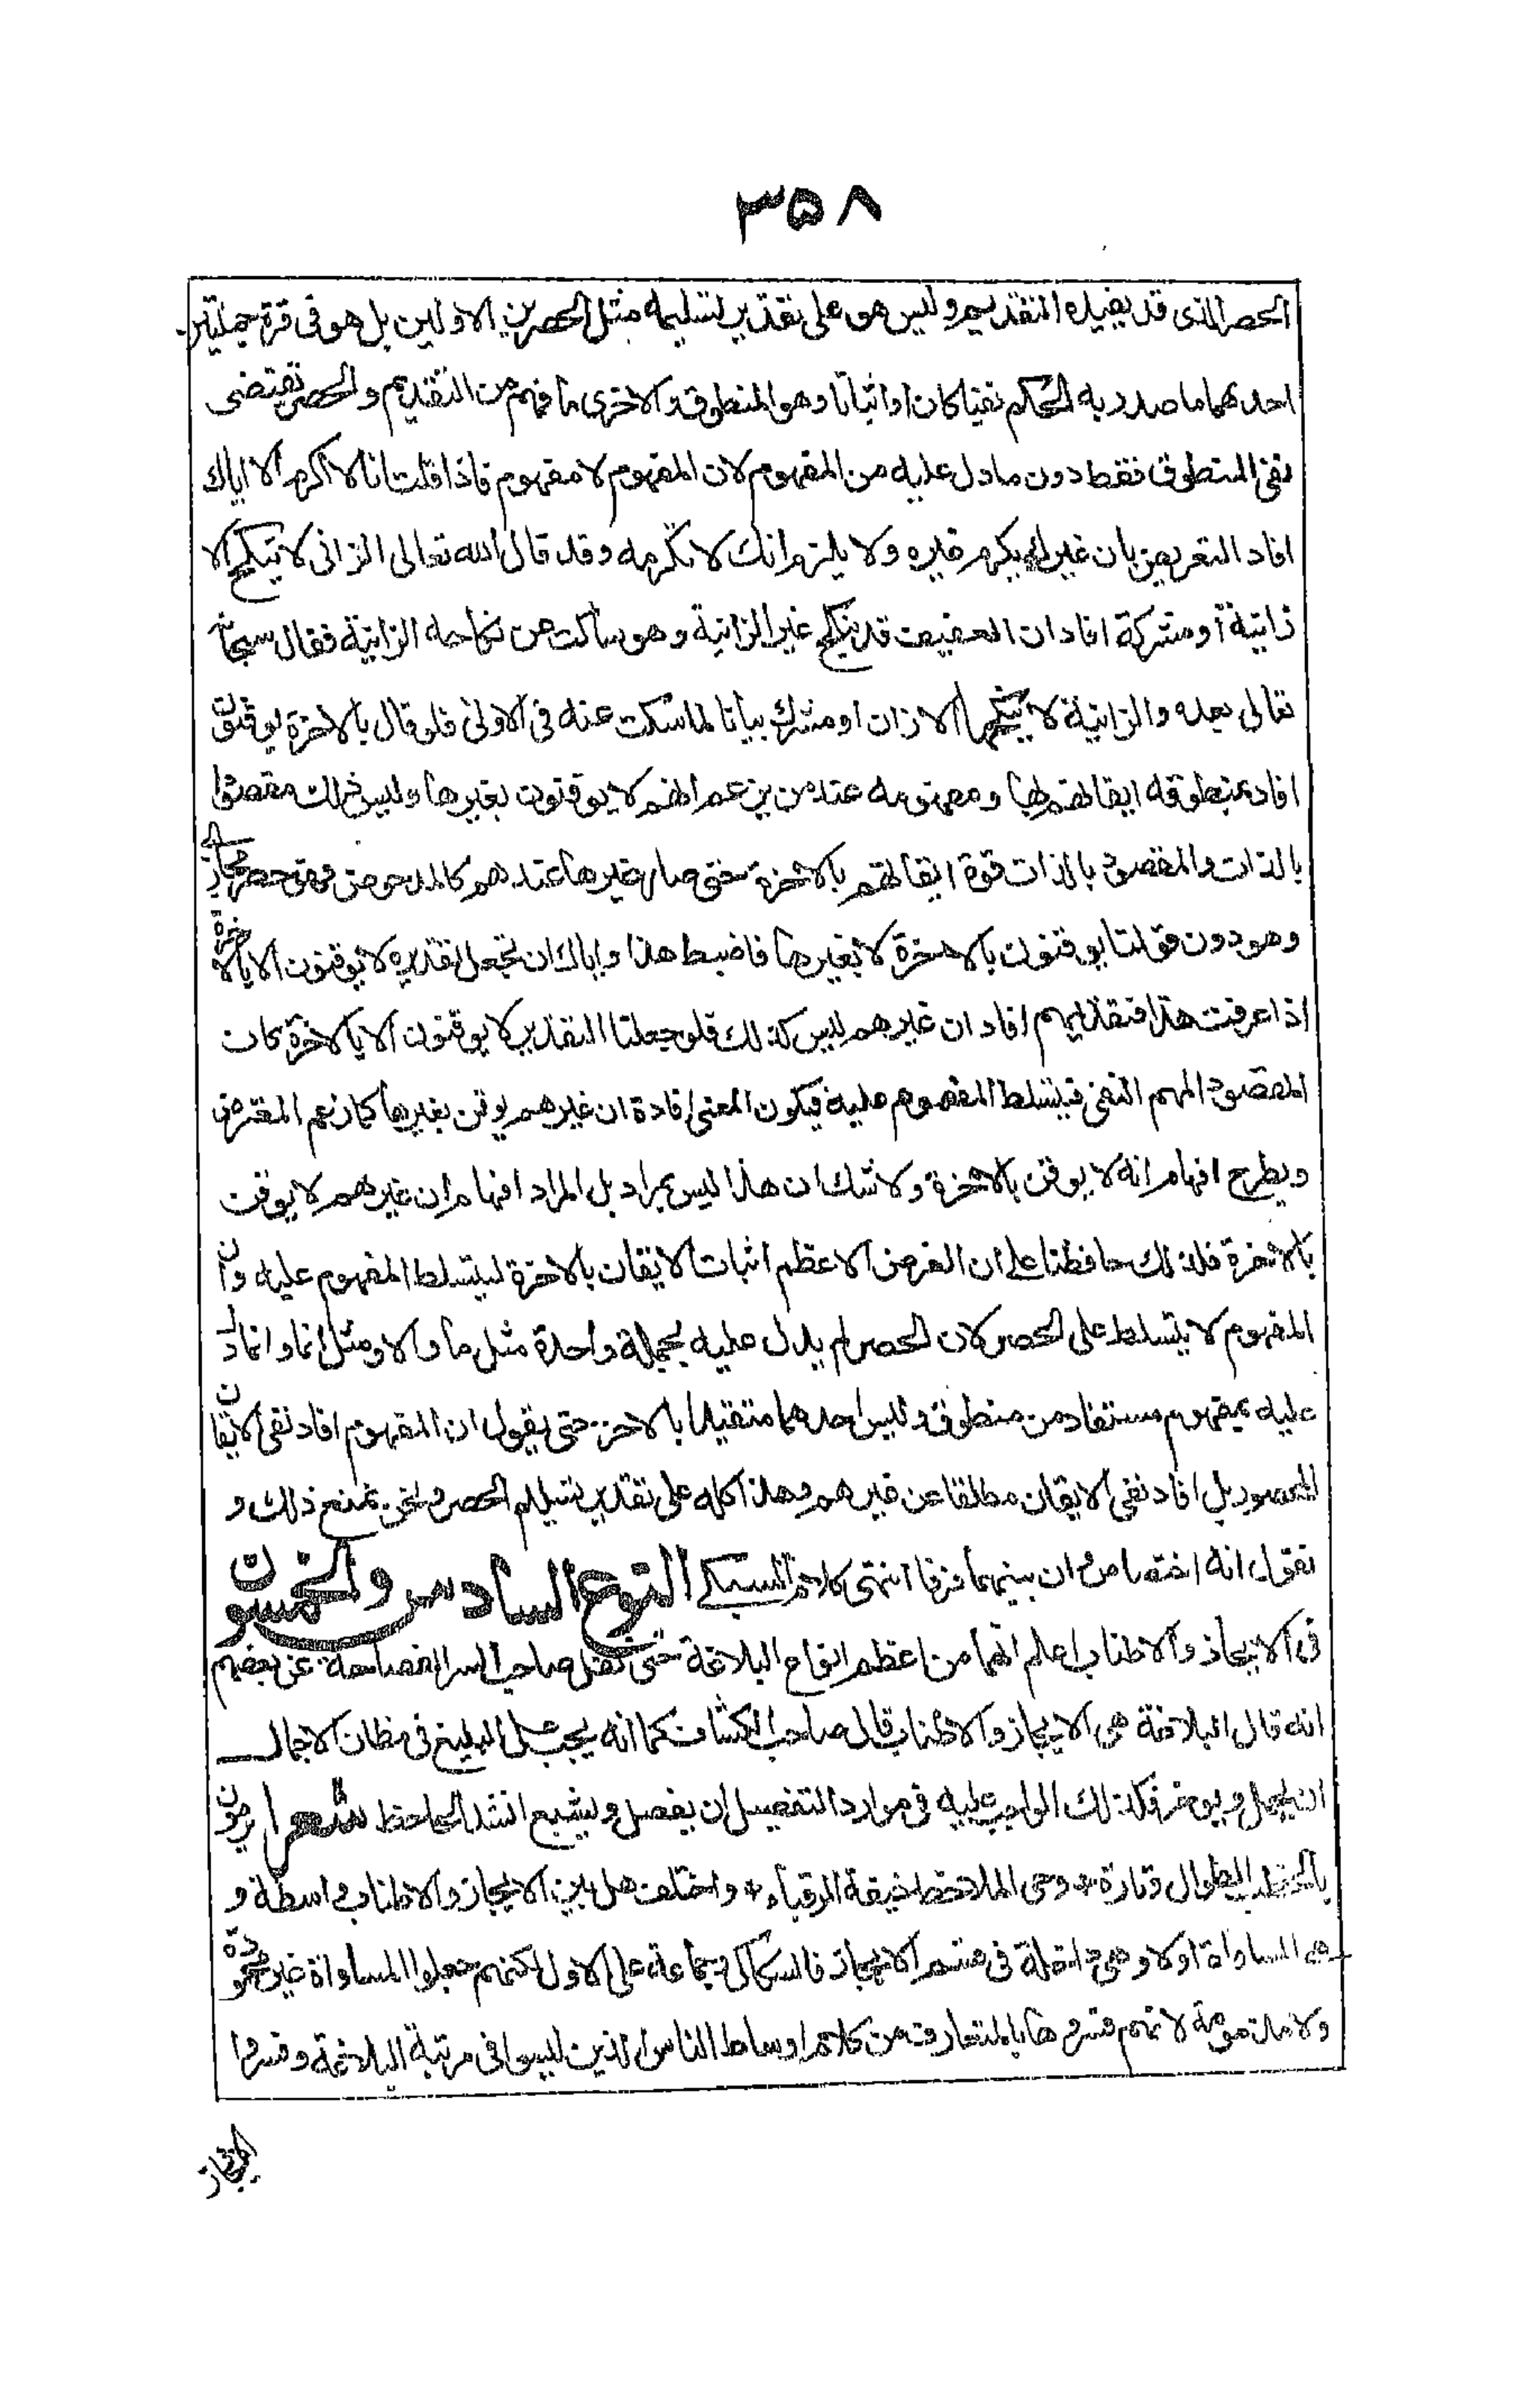 ۳۵۸
الحصر الذى قد يفيده التقديم وليس هو على تقدير تسليمه مثل الحصرين الاولين بل هو فى قوة جملتين
احدهما ما صدر به الحكم نفيا كان او اثباتا وهو المنطوق والاخرى ما فهم من التقديم والحصر يقتضى
نفى المنطوق فقط دون ما دل عليه من المفهوم لان المفهوم لا مفهوم فاذا قلت انا لا اكرم الا اياك
افاد التعريض بان غيرك يكرم غيره ولا يلزم انك لا تكرمه وقد قال الله تعالى الزانى لا ينكح الا
زانية او مشركة افاد ان العفيف قد ينكح غير الزانية وهو ساكت عن نكاحه الزانية فقال سبحانه
تعالى بعده والزانية لا ينكحها الا زان او مشرك بيانا لما سكت عنه فى الاولى فلو قال بالاخرة يوقنون
افاد بمنطوقه ايقانهم بها ومفهومه عند من يزعم انهم لا يوقنون بغيرها وليس ذلك مقصودا
بالذات والمقصود بالذات قوة ايقانهم بالاخرة حتى صار غيرها عندهم كالمدحوض فهو حصر مجازى
وهو دون قولنا يوقنون بالاخرة لا بغيرها فاضبط هذا واياك ان تجعل تقديره لا يوقنون الا بالاخرة
اذا عرفت هذا فتقديم هم افاد ان غيرهم ليس كذلك فلو جعلنا التقدير لا يوقنون الا بالاخرة كان
المقصود المهم النفى فيتسلط المفهوم عليه فيكون المعنى افادة ان غيرهم يوقن بغيرها كما زعم المعترض
ويطرح افهام انه لا يوقن بالاخرة ولا شك ان هذا ليس بمراد بل المراد افهام ان غيرهم لا يوقن
بالاخرة فلذلك حافظنا على ان الغرض الاعظم اثبات الايقان بالاخرة ليتسلط المفهوم عليه وان
المفهوم لا يتسلط على الحصر لان الحصر لم يدل عليه بجملة واحدة مثل ما والا ومثل انما وانما دل
عليه بمفهوم مستفاد من منطوق وليس احدهما متقيدا بالاخر حتى يقول ان المفهوم افاد نفى الايقان
المحصور بل افاد نفى الايقان مطلقا عن غيرهم وهذا كله على تقدير تسليم الحصر ونحن نمنع ذلك و
نقول انه اختصاص وان بينهما فرقا انتهى كلام السبكى النوع السادس والخمسون
فى الايجاز والاطناب اعلم انهما من اعظم انواع البلاغة حتى نقل صاحب سر الفصاحة عن بعضهم
انه قال البلاغة هى الايجاز والاطناب قال صاحب الكشاف كما انه يجب على البليغ فى مظان الاجمال
ان يجمل ويوجز فكذلك الواجب عليه فى موارد التفصيل ان يفصل ويشبع انشد الجاحظ شعرا يرمون
بالخطب الطوال وتارة * وحى الملاحظ خيفة الرقباء * واختلف هل بين الايجاز والاطناب واسطة و
هى المساواة اولا وهى داخلة فى قسم الايجاز فالسكاكى وجماعة على الاول لكنهم جعلوا المساواة غير محمودة
ولا مذمومة لانهم فسروها بالمتعارف من كلام اوساط الناس الذين ليسوا فى مرتبة البلاغة وفسروا
الايجاز